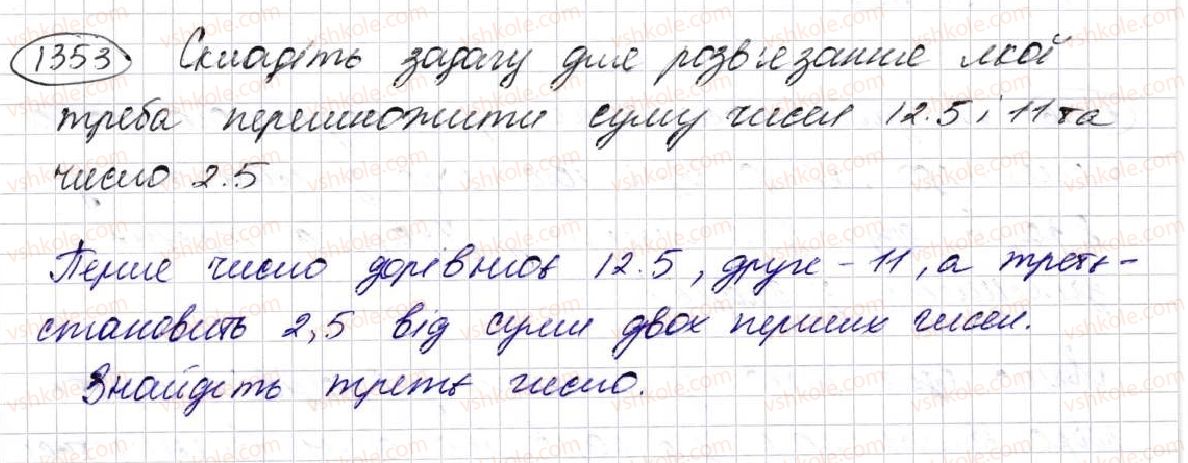 1353. Складіть задачу для розв'язання якой
треба перемножити суму чисел 12.5 і 11 та
число 2.5
Перше число дорівнює 12.5, друге - 11, а третє -
становить 2,5 від суми двох перших чисел.
Знайдіть третє число.